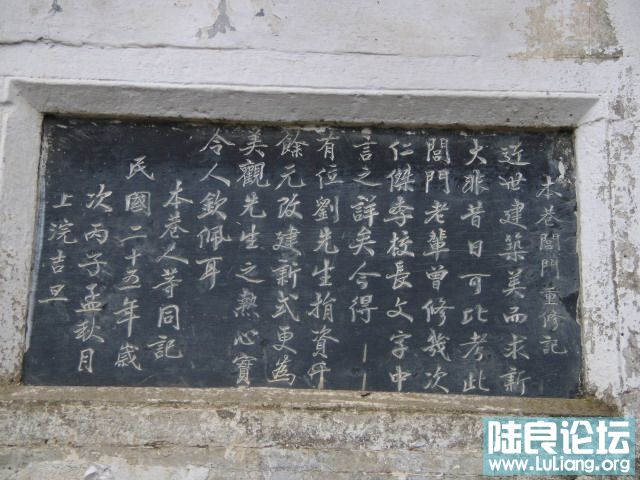 本巷閭門重修記
近世建築美而求新
大非昔日可比考此
閭門老輩曾修幾次
仁傑李校長文字中
言之詳矣今得
有位劉先生捐資千
餘元改建新式更為
美觀先生之熱心實
令人欽佩耳
本巷人等同記
民國二十五年歲
次丙子孟秋月
上浣吉旦
陆良论坛
www.luliang.org